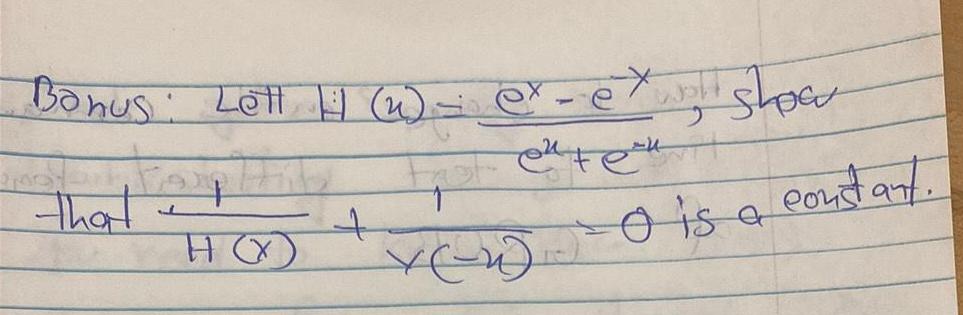 Bonus: Lett H(x) = \frac{e^x - e^{-x}}{e^x + e^{-x}}, show
that \frac{1}{H(x)} + \frac{1}{Y(-x)} = 0 is a constant.